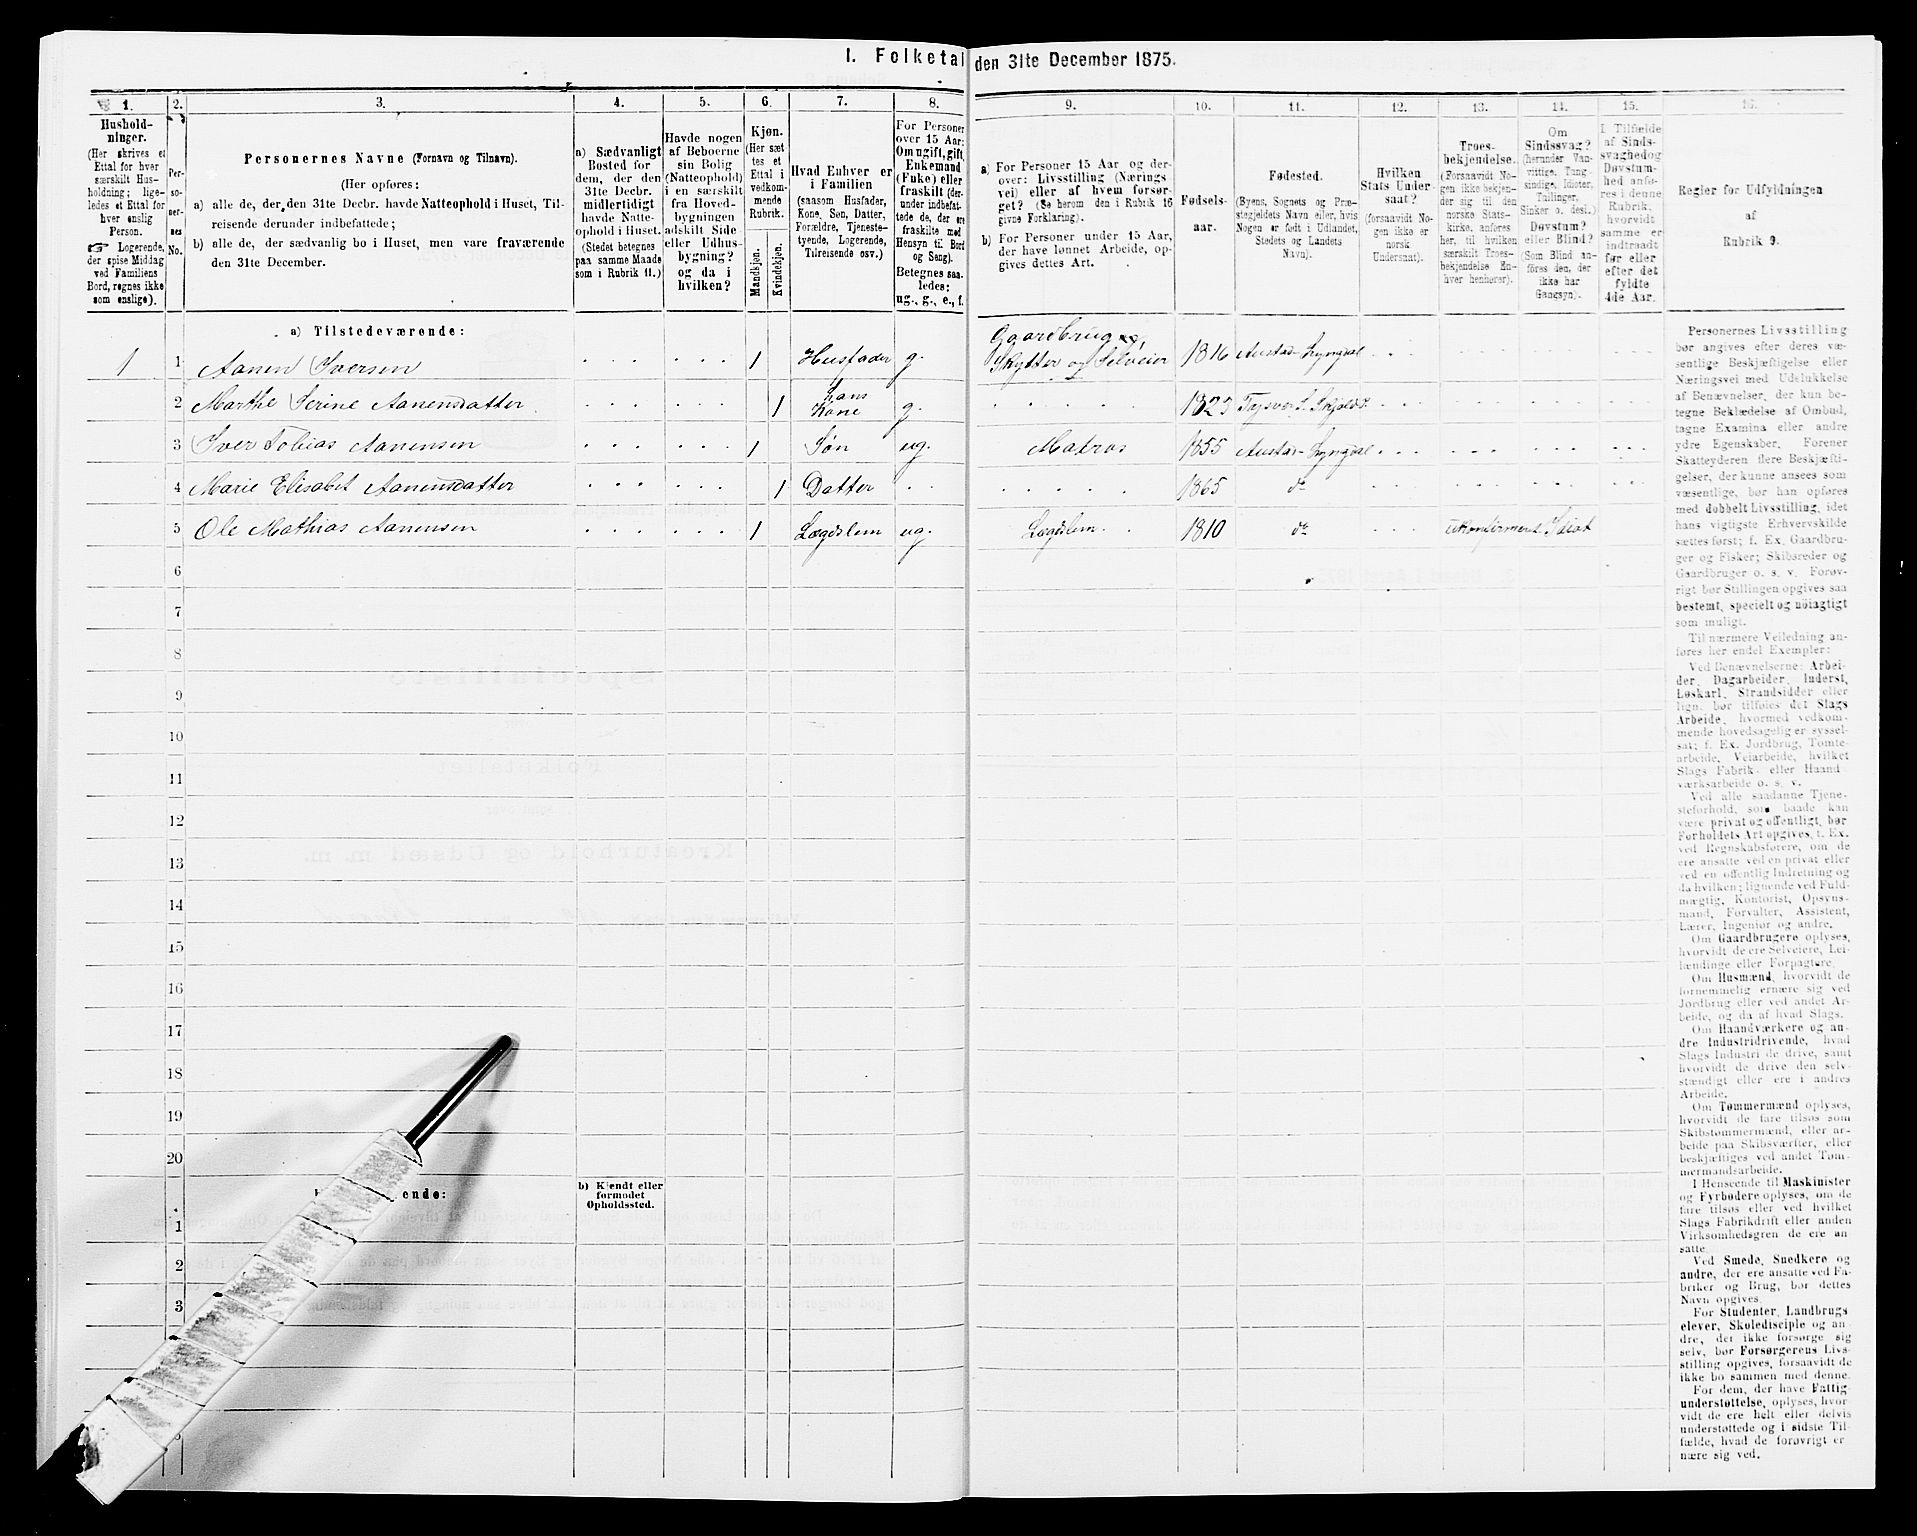 I. Folketal den 31te December 1875.
1. 2. 3. 4. 5. 6. 7. 8. 9. 10. 11. 12. 13. 14. 15. 16.
Hushold-
ninger.
(Her skrives et
Ettal for hver
særskilt Hus-
holdning; lige-
ledes et Ettal for
hver enslig
Person.
☞ Logerende,
der spise Middag
ved Familiens
Bord, regnes ikke
som enslige).
Per-
so-
ner-
nes
No.
Personernes Navne (Fornavn og Tilnavn).
(Her opføres:
a) alle de, der den 31te Decbr. havde Natteophold i Huset, Til-
reisende derunder indbefattede;
b) alle de, der sædvanlig bo i Huset, men vare fraværende
den 31te December.
a) Sædvanligt
Bosted for
dem, der den
31te Decbr.
midlertidigt
havde Natte-
ophold i Huset.
(Stedet betegnes
paa samme Maade
som i Rubrik 11.)
Havde nogen
af Beboerne
sin Bolig
(Natteophold)
i en særskilt
fra Hoved-
bygningen
adskilt Side
eller Udhus-
bygning?
og da i
hvilken?
Kjøn.
(Her sæt-
tes et
Ettal i
vedkom-
mende
Rubrik.
Mandkjøn.
Kvindekjøn.
Hvad Enhver er
i Familien
(saasom Husfader,
Kone, Søn, Datter,
Forældre, Tjeneste-
tyende, Logerende,
Tilreisende osv.)
For Personer
over 15 Aar:
Om ugift, gift,
Enkemand
(Enke) eller
fraskilt (der-
under indbefat-
tede de, der ere
fraskilte med
Hensyn til Bord
og Seng).
Betegnes saa-
ledes:
ug., g., e., f.
a) For Personer 15 Aar og der-
over: Livsstilling (Nærings-
vei) eller af hvem forsør-
get? (Se herom den i Rubrik 16
givne Forklaring).
b) For Personer under 15 Aar,
der have lønnet Arbeide, op-
gives dettes Art.
Fødsels-
aar.
Fødested.
(Byens, Sognets og Præ-
stegjeldets Navn eller, hvis
Nogen er født i Udlandet,
Stedets og Landets
Navn).
Hvilken
Stats Under-
saat?
(forsaavidt No-
gen ikke er
norsk
Undersaat).
Troes-
bekjendelse.
(Forsaavidt No-
gen ikke bekjen-
der sig til den
norske Stats-
kirke, anføres
her, til hvilken
særskilt Troes-
bekjendelse En-
hver henhører).
Om
Sindssvag?
(herunder Van-
vittige, Tung-
sindige, Idioter,
Tullinger,
Sinker o. desl.)
Døvstum?
eller Blind?
(Som Blind an-
føres den, der
ikke har
Gangsyn).
I Tilfælde
af Sinds-
svaghed og
Døvstum-
hed anfø-
res i denne
Rubrik,
hvorvidt
samme er
indtraadt
før eller
efter det
fyldte
4de Aar.
Regler for Udfyldningen
af
Rubrik 9.
a) Tilstedeværende:
Gaardbruger,
1 1 Aanen Iversen 1 Husfader g. Skytter og Selveier 1816 Austad - Lyngdal
2 Marthe Serine Aanensdatter 1 Hans Kone g. 1823 Tysver S. Skjold P.
3 Iver Tobias Aanensen 1 Søn ug. Matros 1855 Austad - Lyngdal
4 Marie Elisabet Aanensdatter 1 Datter 1865 do
5 Ole Mathias Aanensen 1 Lægdslem ug. Lægdslem 1810 do ukonfirmeret Idiot
6
7
8
9
10
11
12
13
14
15
16
17
18
19
20
ende:
b) Kjendt eller
formodet
Opholdssted.
1
2
3
Personernes Livsstilling
bør angives efter deres væ-
sentlige Beskjæftigelse eller
Næringsvei med Udelukkelse
af Benævnelser, der kun be-
tegne Beklædelse af Ombud,
tagne Examina eller andre
ydre Egenskaber. Forener
Skatteyderen flere Beskjæfti-
gelser, der kunne ansees som
væsentlige, bør han opføres
med dobbelt Livsstilling, idet
hans vigtigste Erhvervskilde
sættes først; f. Ex. Gaardbru-
ger og Fisker; Skibsreder og
Gaardbruger o. s. v. Forøv-
rigt bør Stillingen opgives saa
bestemt, specielt og nöiagtigt
som muligt.
Til nærmere Veiledning an-
føres her endel Exempler:
Ved Benævnelserne: Arbei-
der, Dagarbeider, Inderst,
Løskarl, Strandsidder eller
lign. bør tilføies det Slags
Arbeide, hvormed vedkom-
mende hovedsagelig er syssel-
sat; f. Ex. Jordbrug, Tomte-
arbeide, Veiarbeide, hvilket
Slags Fabrik- eller Haand-
værksarbeide o. s. v.
Ved alle saadanne Tjene-
steforhold, som baade kan
være privat og offentligt, bør
Forholdets Art opgives, t. Ex.
ved Regnskabsførere, om de
ere ansatte ved en privat eller
ved en offentlig Indretning og
da hvilken; lignende ved Fuld-
mægtig, Kontorist, Opsyns-
mand, Forvalter, Assistent,
Lærer, Ingeniør og andre.
Om Gaardbrugere oplyses,
hvorvidt de ere Selveiere, Lei-
lændinge eller Forpagtere.
Om Husmænd, hvorvidt de
fornemmelig ernære sig ved
Jordbrug eller ved andet Ar-
beide, og da af hvad Slags.
Om Haandværkere og an-
dre Industridrivende, hvad
Slags Industri de drive, samt
hvorvidt de drive den selv-
stændigt eller ere i andres
Arbeide.
Om Tømmermænd oplyses,
hvorvidt de fare tilsøs som
Skibstømmermænd, eller ar-
beide paa Skibsværfter, eller
beskjæftiges ved andet Tøm-
mermandsarbeide.
I Henseende til Maskinister
og Fyrbødere oplyses, om de
fare tilsøs eller ved hvilket
Slags Fabrikdrift eller anden
Virksomhedsgren de ere an-
satte.
Ved Smede, Snedkere og
andre, der ere ansatte ved Fa-
briker og Brug, bør dettes
Navn opgives.
For Studenter, Landbrugs-
elever, Skoledisciple og an-
dre, der ikke forsørge sig
selv, bør Forsørgerens Livs-
stilling opgives, forsaavidt de
ikke bo sammen med denne.
For dem, der have Fattig-
understøttelse, oplyses, hvor-
vidt de ere helt eller delvis
understøttede og i sidste Til-
fælde, hvad de forøvrigt er-
nære sig ved.